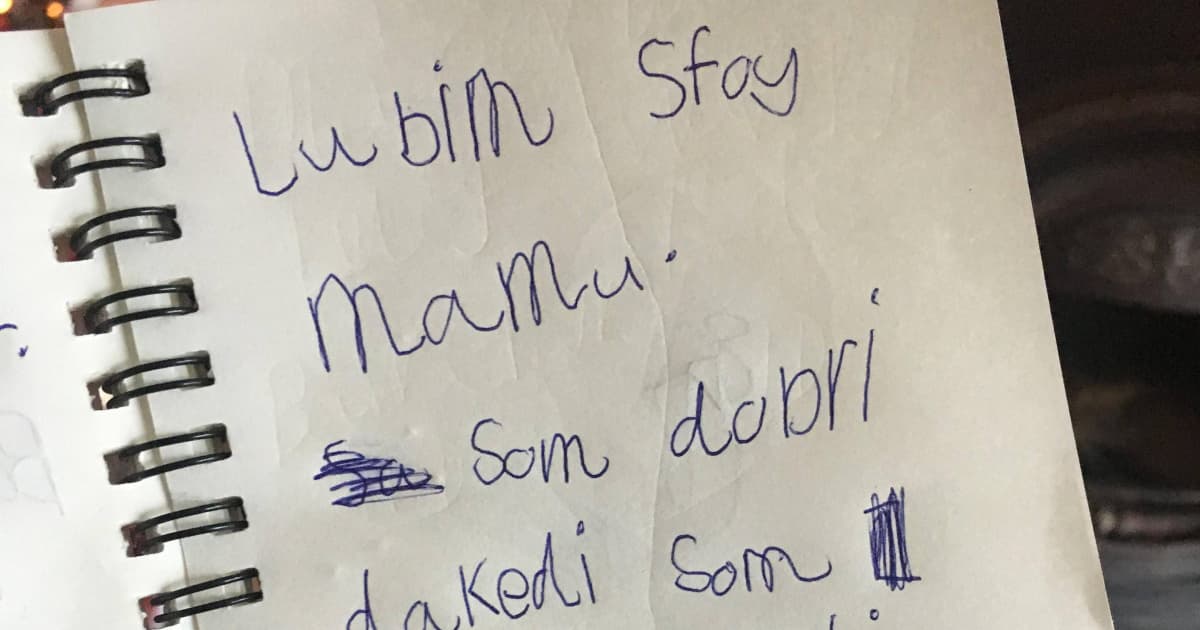 Lubim Stoy
mamu.
Som dobri
dakedi som